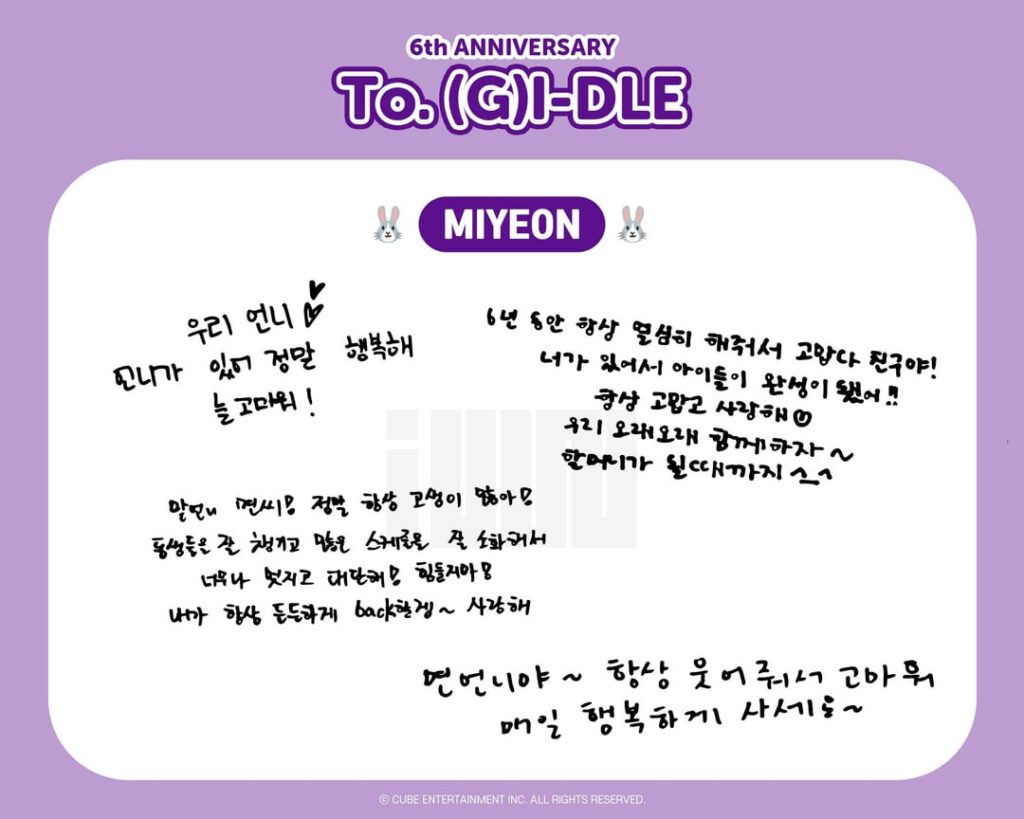 6th ANNIVERSARY
To. (G)I-DLE
MIYEON
우리 언니
언니가 있어 정말 행복해
늘 고마워!
6년 동안 항상 열심히 해줘서 고맙다 친구야!
너가 있어서 아이들이 완성이 됐어!!
항상 고맙고 사랑해
우리 오래오래 함께하자~
할머니가 될때까지 ^_^
맏언니 면씨! 정말 항상 고생이 많아!
동생들은 잘 챙기고 많은 스케줄을 잘 소화해서
너무나 멋지고 대단해! 힘들지마!
내가 항상 든든하게 back할겜~ 사랑해
면언니야~ 항상 웃어줘서 고마워
매일 행복하게 사세용~
ⓒ CUBE ENTERTAINMENT INC. ALL RIGHTS RESERVED.